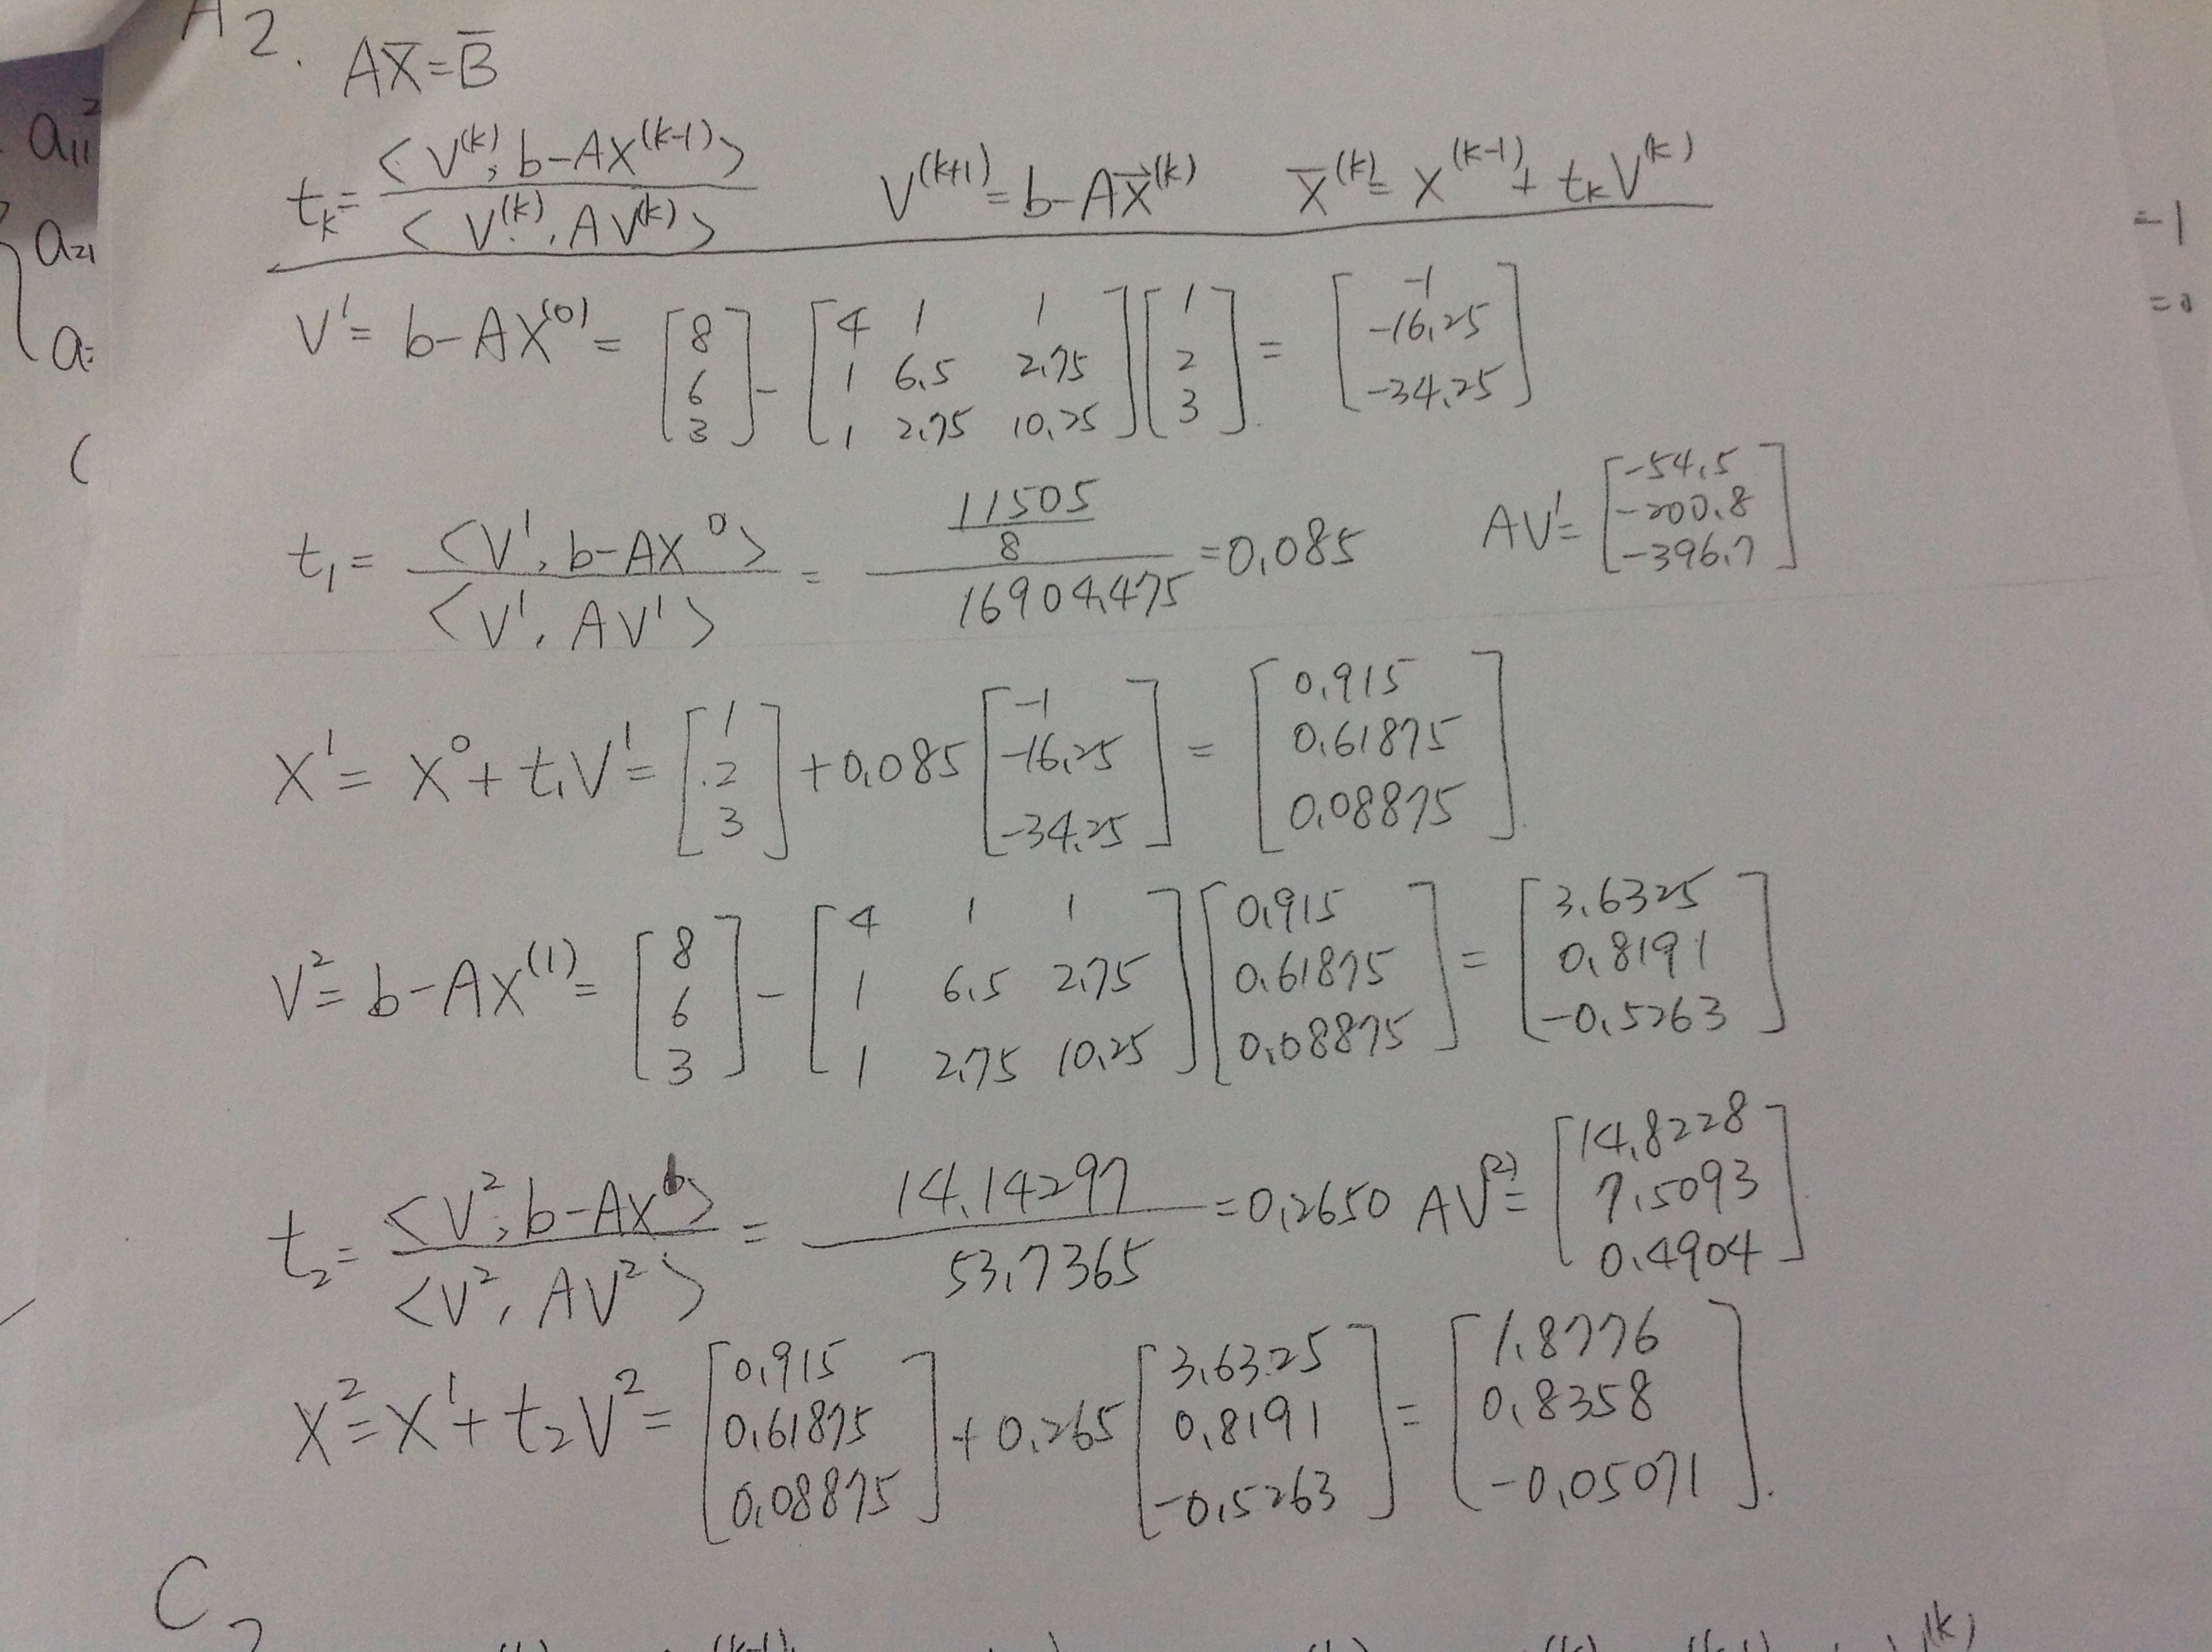 A2.
AX̅=B̅
a₁₁²
a₂₁
a
(
t_k= <V^(k), b-AX^(k-1)> / <V^(k), AV^(k)>    V^(k+1)=b-AX⃗^(k)    X̅^(k)=X^(k-1)+t_kV^(k)
=-1
=0
V¹=b-AX^(0)= [8 6 3] - [4 1 1; 1 6.5 2.75; 1 2.75 10.25] [1 2 3] = [-1 -16.25 -34.25]
t₁= <V¹, b-AX⁰> / <V¹, AV¹> = (11505/8) / 16904.475 =0.085    AV¹= [-54.5 -200.8 -396.7]
X¹=X⁰+t₁V¹= [1 2 3] +0.085 [-1 -16.25 -34.25] = [0.915 0.61875 0.08875]
V²=b-AX^(1)= [8 6 3] - [4 1 1; 1 6.5 2.75; 1 2.75 10.25] [0.915 0.61875 0.08875] = [3.6325 0.8191 -0.5263]
t₂= <V², b-AX¹> / <V², AV²> = 14.14297 / 53.7365 =0.2650    AV^(2)= [14.8228 7.5093 0.4904]
X²=X¹+t₂V²= [0.915 0.61875 0.08875] +0.265 [3.6325 0.8191 -0.5263] = [1.8776 0.8358 -0.05071].
C